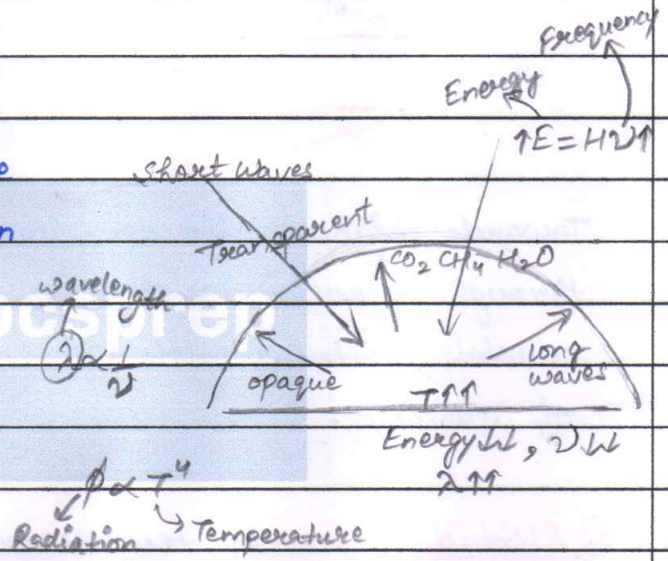 Frequency
Energy
↑E = Hν↑
Short waves
Transparent
CO₂ CH₄ H₂O
wavelength
λ ∝ 1/ν
ocsprep
opaque
long
waves
T↑↑
Energy↓↓, ν↓↓
λ↑↑
ϕ ∝ T⁴
Radiation
Temperature